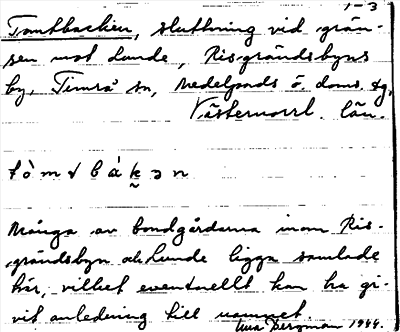 1-3
Tomtbacken, sluttning vid grän-
sen mot Lunde, Risgrändsbyns
by, Timrå sn, Medelpads ö. doms. tg,
Västernorrl. län.
tò m t b á k ə n
Många av bondgårdarna inom Ris-
grändsbyn och Lunde ligga samlade
här, vilket eventuellt kan ha gi-
vit anledning till namnet.
Bergman 1944.